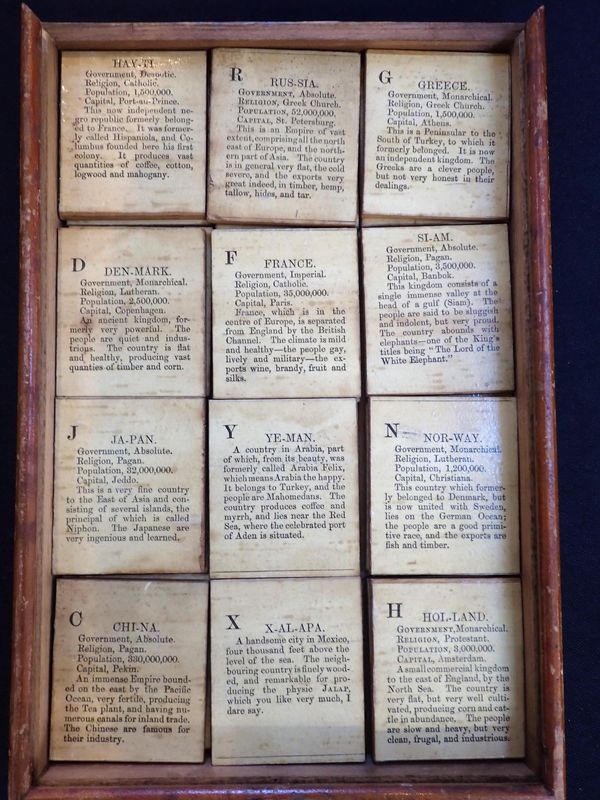 HAY-TI.
Government, Despotic.
Religion, Catholic.
Population, 1,500,000.
Capital, Port-au-Prince.
This now independent ne-
gro republic formerly belong-
ed to France. It was former-
ly called Hispaniola, and Co-
lumbus founded here his first
colony. It produces vast
quantities of coffee, cotton,
logwood and mahogany.
R
RUS-SIA.
GOVERNMENT, Absolute.
RELIGION, Greek Church.
POPULATION, 52,000,000.
CAPITAL, St. Petersburg.
This is an Empire of vast
extent, comprising all the north
east of Europe, and the north-
ern part of Asia. The country
is in general very flat, the cold
severe, and the exports very
great indeed, in timber, hemp,
tallow, hides, and tar.
G
GREECE.
Government, Monarchical.
Religion, Greek Church.
Population, 1,500,000.
Capital, Athens.
This is a Peninsular to the
South of Turkey, to which it
formerly belonged. It is now
an independent kingdom. The
Greeks are a clever people,
but not very honest in their
dealings.
D
DEN-MARK.
Government, Monarchical.
Religion, Lutheran.
Population, 2,500,000.
Capital, Copenhagen.
An ancient kingdom, for-
merly very powerful. The
people are quiet and indus-
trious. The country is flat
and healthy, producing vast
quanties of timber and corn.
F
FRANCE.
Government, Imperial.
Religion, Catholic.
Population, 35,000,000.
Capital, Paris.
France, which is in the
centre of Europe, is separated
from England by the British
Channel. The climate is mild
and healthy—the people gay,
lively and military—the ex-
ports wine, brandy, fruit and
silks.
SI-AM.
Government, Absolute.
Religion, Pagan.
Population, 3,500,000.
Capital, Bankok.
This kingdom consists of a
single immense valley at the
head of a gulf (Siam). The
people are said to be sluggish
and indolent, but very proud.
The country abounds with
elephants—one of the King's
titles being "The Lord of the
White Elephant."
J
JA-PAN.
Government, Absolute.
Religion, Pagan.
Population, 32,000,000.
Capital, Jeddo.
This is a very fine country
to the East of Asia and con-
sisting of several islands, the
principal of which is called
Niphon. The Japanese are
very ingenious and learned.
Y
YE-MAN.
A country in Arabia, part
of which, from its beauty, was
formerly called Arabia Felix,
which means Arabia the happy.
It belongs to Turkey, and the
people are Mahomedans. The
country produces coffee and
myrrh, and lies near the Red
Sea, where the celebrated port
of Aden is situated.
N
NOR-WAY.
Government, Monarchical.
Religion, Lutheran.
Population, 1,200,000.
Capital, Christiana.
This country which former-
ly belonged to Denmark, but
is now united with Sweden,
lies on the German Ocean;
the people are a good primi-
tive race, and the exports are
fish and timber.
C
CHI-NA.
Government, Absolute.
Religion, Pagan.
Population, 330,000,000.
Capital, Pekin.
An immense Empire bound-
ed on the east by the Pacific
Ocean, very fertile, producing
the Tea plant, and having nu-
merous canals for inland trade.
The Chinese are famous for
their industry.
X
X-AL-APA.
A handsome city in Mexico,
four thousand feet above the
level of the sea. The neigh-
bouring country is finely wood-
ed, and remarkable for pro-
ducing the physic JALAP,
which you like very much, I
dare say.
H
HOL-LAND.
GOVERNMENT, Monarchical.
RELIGION, Protestant.
POPULATION, 3,000,000.
CAPITAL, Amsterdam.
A small commercial kingdom
to the east of England, by the
North Sea. The country is
very flat, but very well culti-
vated, producing corn and cat-
tle in abundance. The people
are slow and heavy, but very
clean, frugal, and industrious.